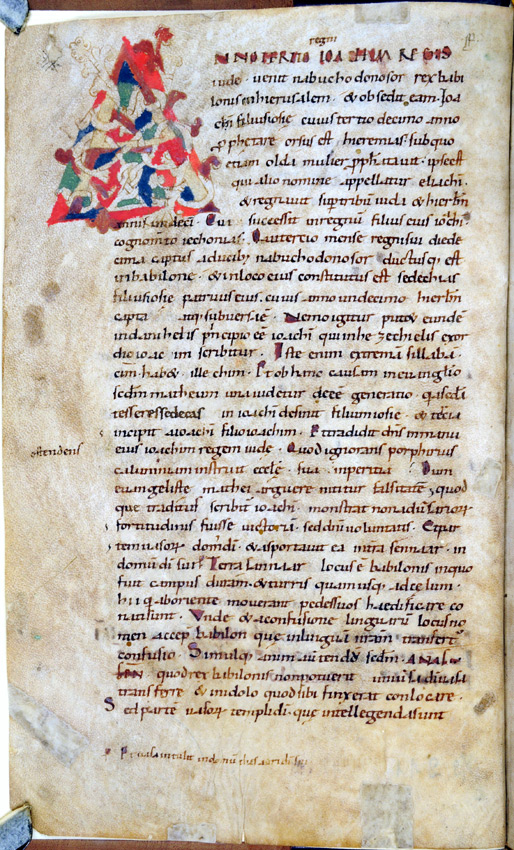 regni
NNO TERTIO IOACHIM REGIS
iude · uenit nabuchodonosor rex babi
lonis in hierusalem · & obsedit eam · Ioa
chi filius iosie cuius tertio decimo anno
pphetare orsus est hieremias · sub quo
etiam olda mulier pphitauit · ipse est
qui alio nomine appellatur eliachi ·
& regnauit sup tribum iuda & hierlm
annis undeci · Cui successit in regnu filius eius ioachi ·
cognomto iechonias · mense regni sui die de
cima captus a ducib; nabuchodonosor ductusq; est
in babilone · & in loco eius constitutus est sedechias
filius iosie patruus eius · cuius anno undecimo hierlm
capta subuersa e · Nemo igitur putet eunde
in danihelis principio ee ioachi qui in hezechielis exor
dio ioac im scribitur · Iste enim extrema sillaba
cum habet · ille chim · Et ob hanc causam in euanglio
sedm matheum una uidetur deee generatio · qa scda
tesseressedecas in ioachi definit filium iosie · & tercia
incipit a ioachi filio ioachim · Et tradidit dns in manu
ostendens
eius ioachim regem iude · Quod ignorans porphirius
calumniam instruit eccle · sua inperitia Dum
euangeliste mathei arguere nititur falsitate · quod
que traditus scribit ioachi · monstrat non aduersarior
fortitudinis fuisse uictoria · sed dni uoluntatis · Et par
tem uasor dom di · & asportauit ea in tra sennaar · in
domu di sui · Terra sennaar locus e babilonis in quo
fuit campus duram · & turris quam usq; ad celum ·
hii q ab oriente mouerant pedes suos haedificare co
nati sunt · Unde & a confusione linguaru locus no
men accep babilon que in lingua nram transfert
confusio · Simulq; animauertend sedm
quod rex babilonis non potuerit uniuersa di uasa
transferre & in idolo quod sibi finxerat conlocare ·
Sed parte uasor templi di · que intellegenda sunt